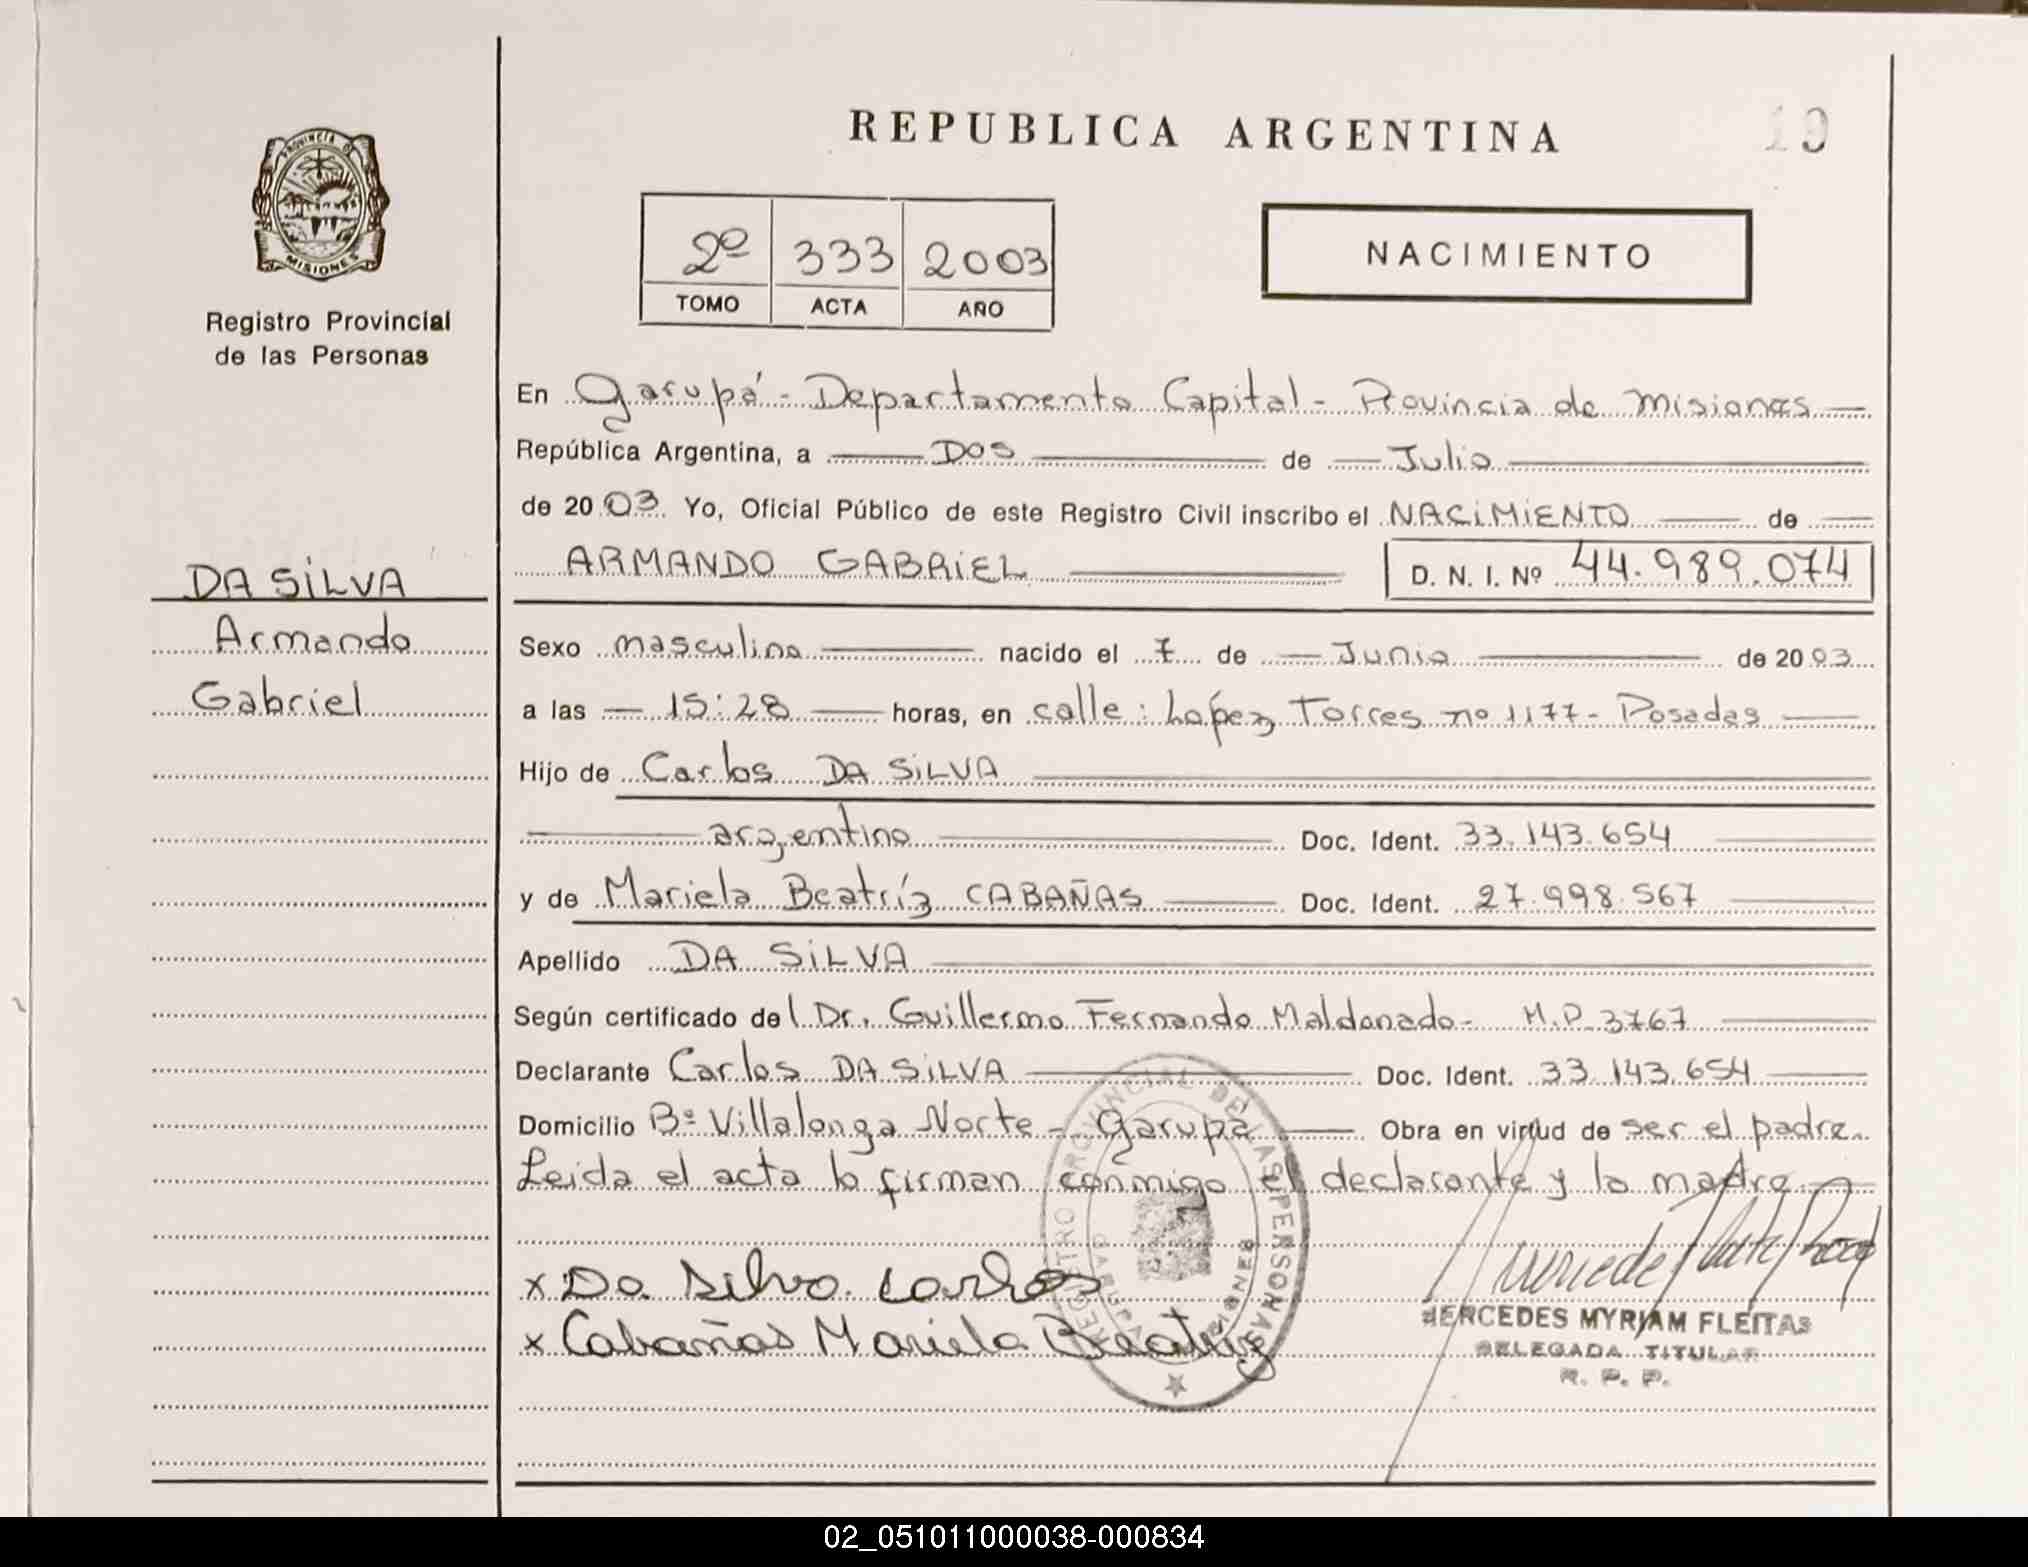 REPUBLICA ARGENTINA
19
PROVINCIA DE
MISIONES
Registro Provincial
de las Personas
2º 333 2003
TOMO ACTA AÑO
NACIMIENTO
En Garupá - Departamento Capital - Provincia de Misiones
República Argentina, a Dos de Julio
de 2003 Yo, Oficial Público de este Registro Civil inscribo el NACIMIENTO de
ARMANDO GABRIEL D. N. I. Nº 44.989.074
DA SILVA
Armando
Gabriel
Sexo masculino nacido el 7 de Junio de 2003
a las 15:28 horas, en calle: López Torres nº 1177 - Posadas
Hijo de Carlos DA SILVA
argentino Doc. Ident. 33.143.654
y de Mariela Beatríz CABAÑAS Doc. Ident. 27.998.567
Apellido DA SILVA
Según certificado del Dr. Guillermo Fernando Maldonado - M.P. 3767
Declarante Carlos DA SILVA Doc. Ident. 33.143.654
Domicilio Bº Villalonga Norte - Garupá Obra en virtud de ser el padre.
Leida el acta la firman conmigo el declarante y la madre
REGISTRO PROVINCIAL DE LAS PERSONAS
GARUPA MISIONES
x Da Silva Carlos
x Cabañas Mariela Beatriz
MERCEDES MYRIAM FLEITAS
DELEGADA TITULAR
R. P. P.
02_051011000038-000834